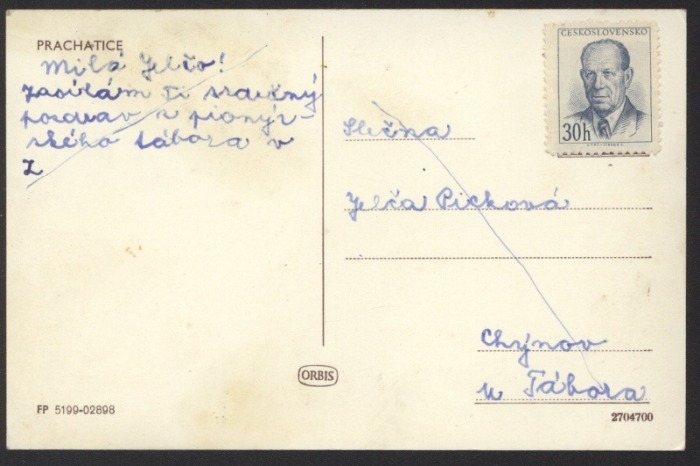 PRACHATICE
Milá Jelčo!
Zasílám Ti srdečný
pozdrav z pionýr-
ského tábora v
Z
ČESKOSLOVENSKO
30h
Slečna
Jelča Picková
Chýnov
u Tábora
ORBIS
FP 5199-02898
2704700